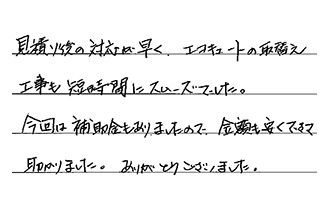 見積り後の対応が早く、エコキュートの取替え
工事も短時間にスムーズでした。
今回は補助金もありましたので、金額も安くできて
助かりました。ありがとうございました。